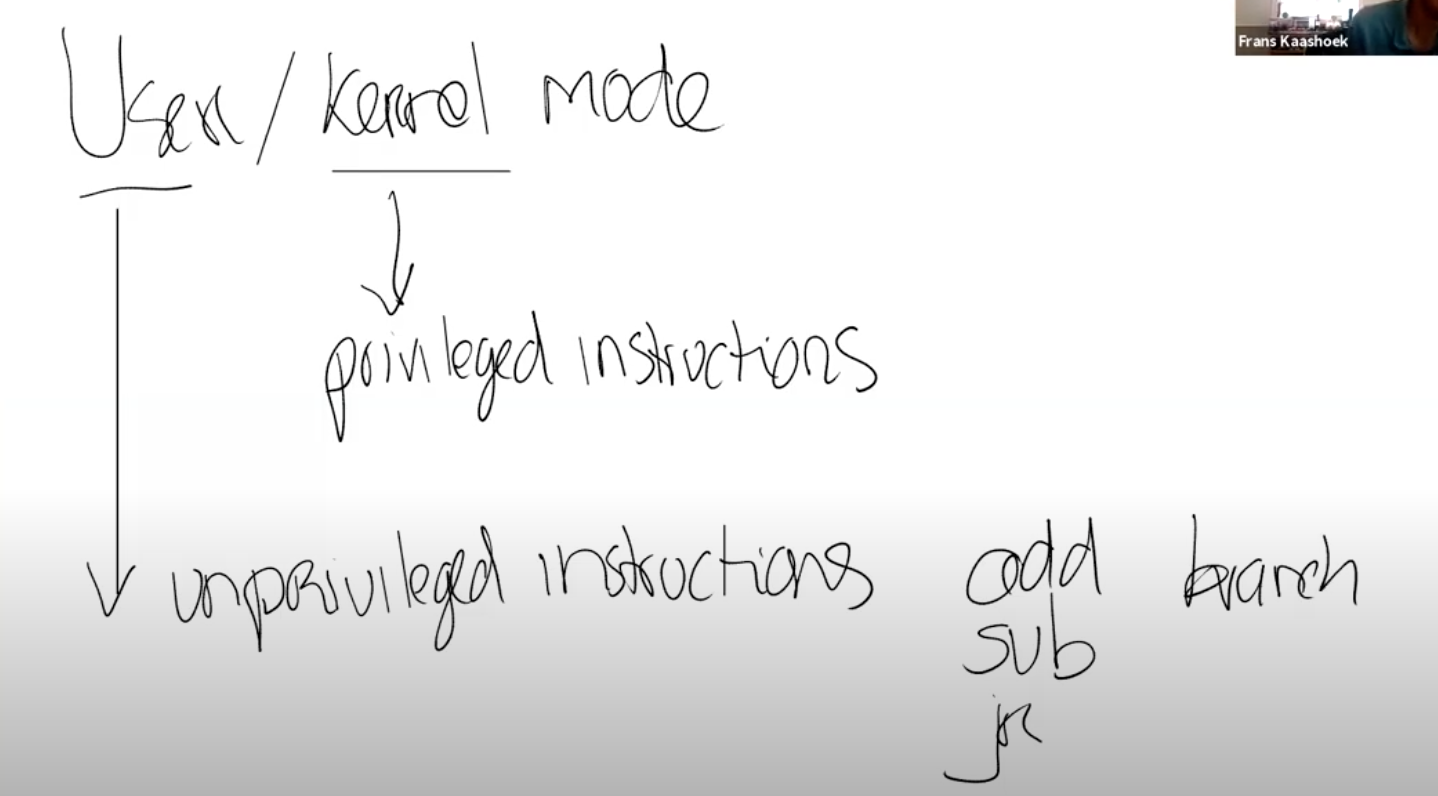 Frans Kaashoek
User / Kernel mode
privileged instructions
unprivileged instructions add branch
sub
jr